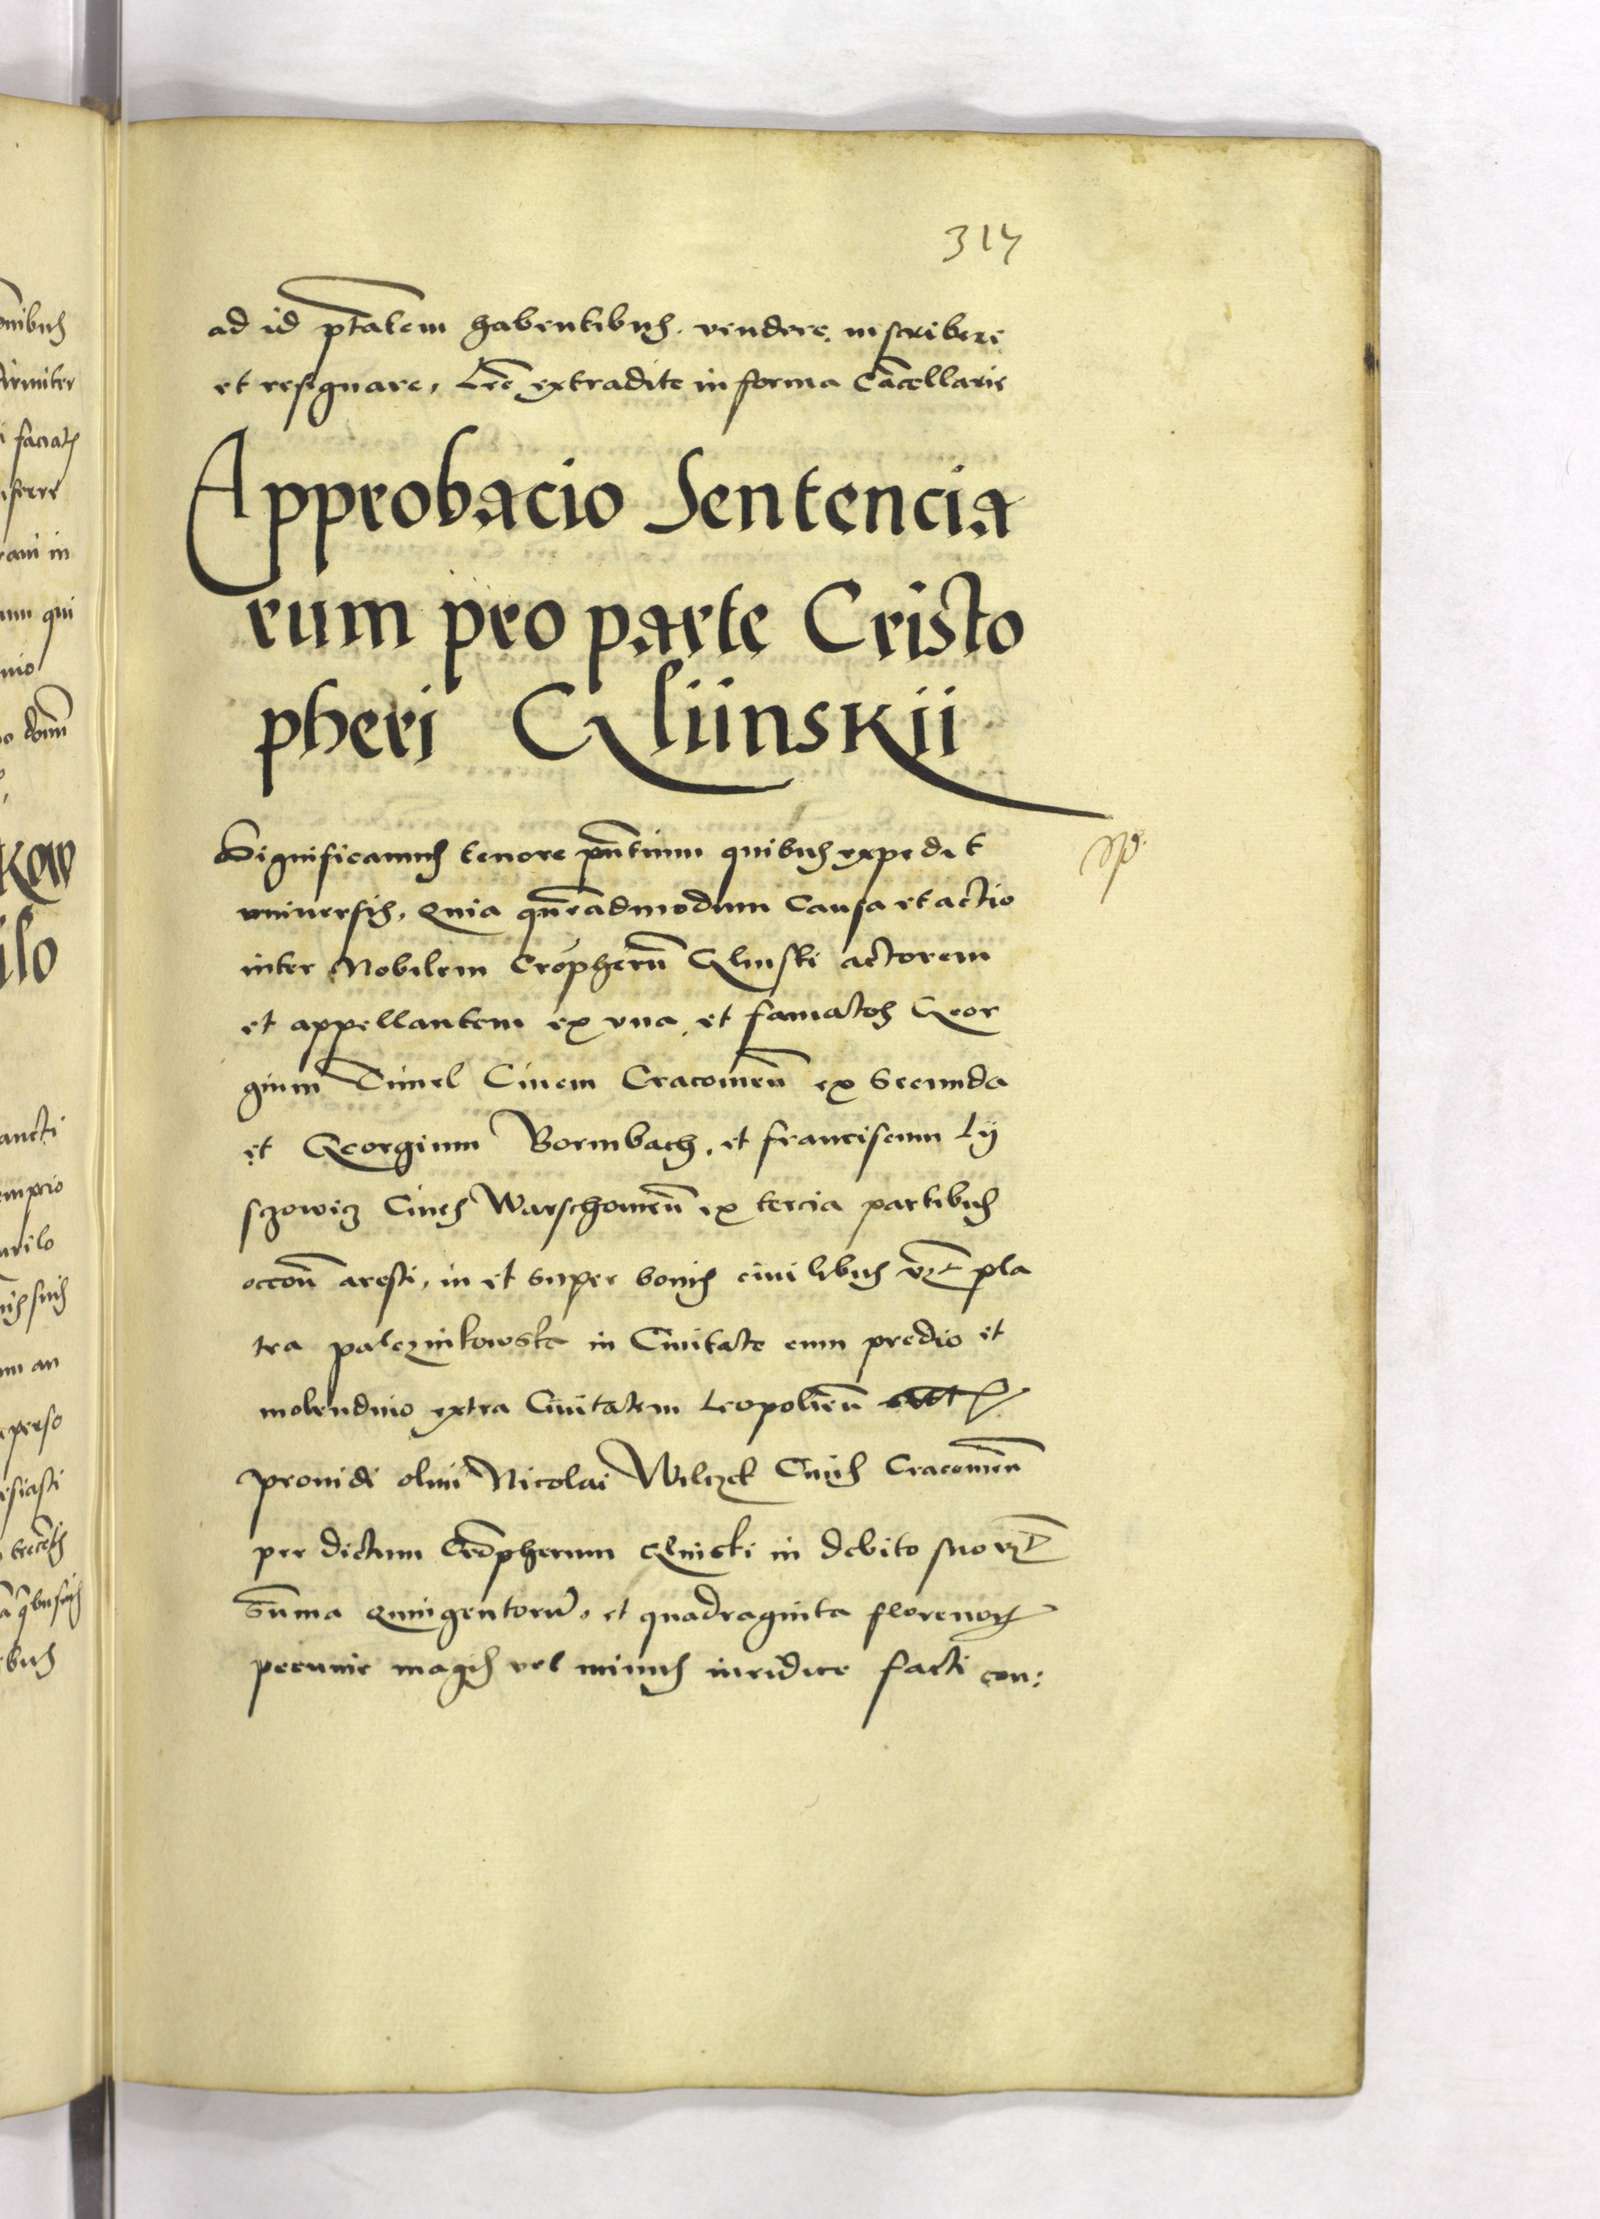 314
ad id ptalem habentibus. vendere, inscribere
et resignare, Lre extradite in forma Cancellarie
Approbacio Sentencia
rum pro parte Cristo
pheri Gliinskii
Significamus tenore pntium quibus expedit
vniuersis, Quia quemadmodum Causa et actio
inter Nobilem Cropherum Glinski actorem
et appellantem ex vna, et famatos Geor
gium Cimel Ciuem Cracouien ex Secunda
et Georgium Bormbach, et franciscum Ly
szowicz Ciues Warschouien ex tercia partibus
occon aresti, in et super bonis ciuilibus vzt pla
tea palcznikowska in Ciuitate cum predio et
molendino extra Ciuitatem Leopolien
prouidi olim Nicolai Wilczek Ciuis Cracouien
per dictum Cropherum Glinski in debito suo vzt
Summa Quingentorum, et quadraginta florenorum
pecunie magis vel minus iuridice facti con:
onibus
firmiter
faciatis
ferre
rani in
qui
nio
domini
kow
ilo
sancti
empcio
suis
an
perso
esiasti